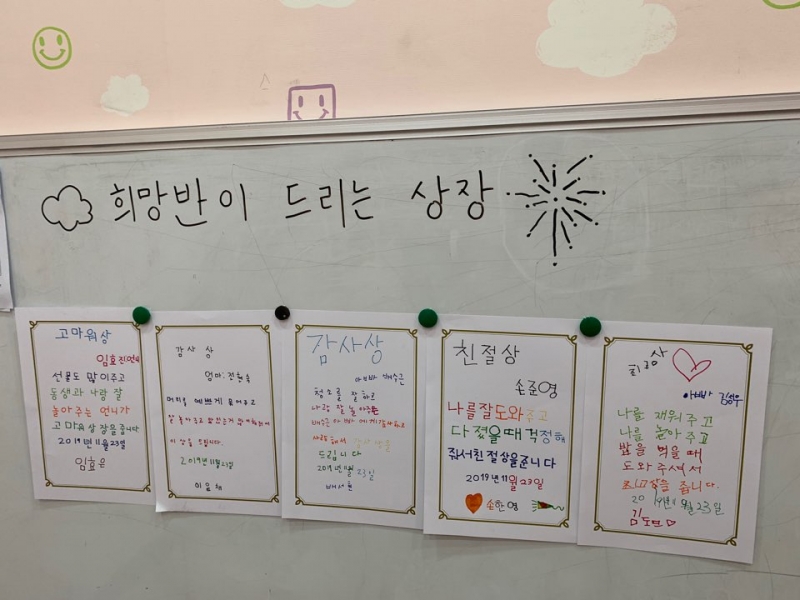 희망반이 드리는 상장
고마워상
임효진언니
선물도 많이주고
동생과 나랑 잘
놀아 주는 언니가
고마워 상장을 줍니다
2019년 11월 23일
임효은
감사 상
엄마:
머리를 예쁘게 묶어주고
이 상을 드립니다.
2019년 11월 23일
감사상
아빠
청소를 잘하고
나랑 잘 놀아주는
사랑해서 감사상을
드립니다
2019년 11월 23일
배서현
친절상
손준영
나를잘도와주고
다쳤을때걱정해
줘서친절상을줍니다
2019년 11월 23일
손한영
최고상
아빠 김성우
나를 재워 주고
나를 놀아 주고
밥을 먹을 때
도와 주셔서
최고상을 줍니다.
2019년 11월 23일